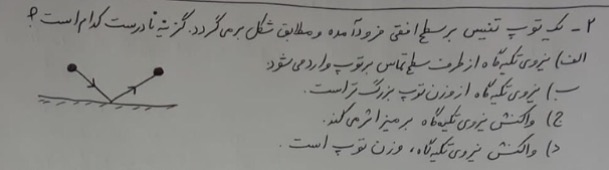 ۲- یک توپ تنیس بر سطح افقی فرود آمده و مطابق شکل برمی‌گردد. گزینهٔ نادرست کدام است؟
الف) نیروی تکیه‌گاه از طرف سطح تماس بر توپ وارد می‌شود.
ب) نیروی تکیه‌گاه از وزن توپ بزرگ‌تر است.
ج) واکنش نیروی تکیه‌گاه بر میز اثر می‌کند.
د) واکنش نیروی تکیه‌گاه، وزن توپ است.